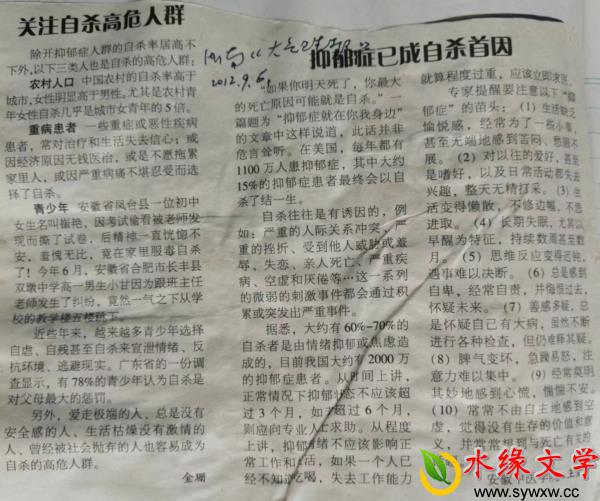 关注自杀高危人群
除开抑郁症人群的自杀率居高不
下外,以下三类人也是自杀的高危人群:
农村人口 中国农村的自杀率高于
城市,女性明显高于男性。尤其是农村青
年女性自杀几乎是城市女青年的5倍。
重病患者 一些重症或恶性疾病
患者,常对治疗和生活失去信心;或
因经济原因无钱医治,或是不愿拖累
家里人,或因严重病痛不堪忍受而选
择了自杀。
青少年 安徽省凤台县一位初中
女生名叫崔艳,因考试偷看被老师发
现而撕了试卷,后精神一直恍惚不
安,羞愧无比,竟在家里服毒自杀
了!今年6月,安徽省合肥市长丰县
双墩中学高一男生小甘因为跟班主任
老师发生了纠纷,竟然一气之下从学
校的教学楼五楼跳下。
近些年来,越来越多青少年选择
自虐、自残甚至自杀来宣泄情绪、反
抗环境、逃避现实。广东省的一份调
查显示,有78%的青少年认为自杀是
对父母最大的惩罚。
另外,爱走极端的人、总是没有
安全感的人、生活枯燥没有激情的
人、曾经被社会抛弃的人也容易成为
自杀的高危人群。
金珊
2012.9.6
抑郁症已成自杀首因
“如果你明天死了,你最大
的死亡原因可能就是自杀。”一
篇题为“抑郁症就在你我身边”
的文章中这样说道,此话并非
危言耸听。在美国,每年都有
1100万人患抑郁症,其中大约
15%的抑郁症患者最终会以自
杀了结一生。
自杀往往是有诱因的,例
如:严重的人际关系冲突、严
重的挫折、受到他人威胁或羞
辱、失恋、亲人死亡、严重疾
病、空虚和厌倦等…这一系列
的微弱的刺激事件都会通过积
累或突发出严重事件。
据悉,大约有60%-70%的
自杀者是由情绪抑郁或焦虑造
成的,目前我国大约有2000万
的抑郁症患者。从时间上讲,
正常情况下抑郁状态不应该超
过3个月,如果超过6个月,
则应向专业人士求助。从程度
上讲,抑郁情绪不应该影响正
常工作和生活,如果一个人已
经不知道吃喝,失去工作能力
就算程度过重,应该立即求医。
专家提醒要注意以下“抑
郁症”的苗头:(1)生活缺乏
愉悦感,经常为了一些小事,
甚至无端地感到苦闷、愁眉不
展。(2)对以往的爱好,甚至
是嗜好,以及日常活动都失去
兴趣,整天无精打采。(3)生
活变得懒散,不修边幅,不思
进取。(4)长期失眠,尤其以
早醒为特征,持续数周甚至数
月。(5)思维反应变得迟钝,
遇事难以决断。(6)总是感到
自卑,经常自责,并悔恨过去,
怀疑未来。(7)善感多疑,总
是怀疑自己有大病,虽然不断
进行各种检查,但仍难释其疑。
(8)脾气变坏,急躁易怒,注
意力难以集中。(9)经常莫明
其妙地感到心慌,惴惴不安。
(10)常常不由自主地感到空
虚,觉得没有生存的价值和意
义,并常常想到与死亡有关的
水缘文学
www.sywxw.com